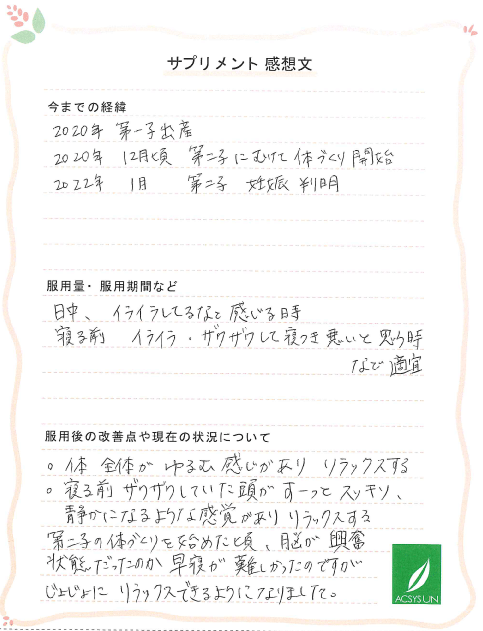 サプリメント 感想文
今までの経緯
2020年 第一子出産
2020年 12月頃 第二子にむけて体づくり開始
2022年 1月 第二子 妊娠 判明
服用量・服用期間など
日中、イライラしてるなと感じる時
寝る前 イライラ・ザワザワして寝つき悪いと思う時
など適宜
服用後の改善点や現在の状況について
○ 体 全体が ゆるむ 感じがあり リラックスする
○ 寝る前 ザワザワしていた頭が すーっと スッキリ、
静かになるような感覚があり リラックスする
第二子の体づくりを始めた頃、脳が 興奮
状態だったのか 早寝が 難しかったのですが
じょじょに リラックスできるようになりました。
ACSYSUN